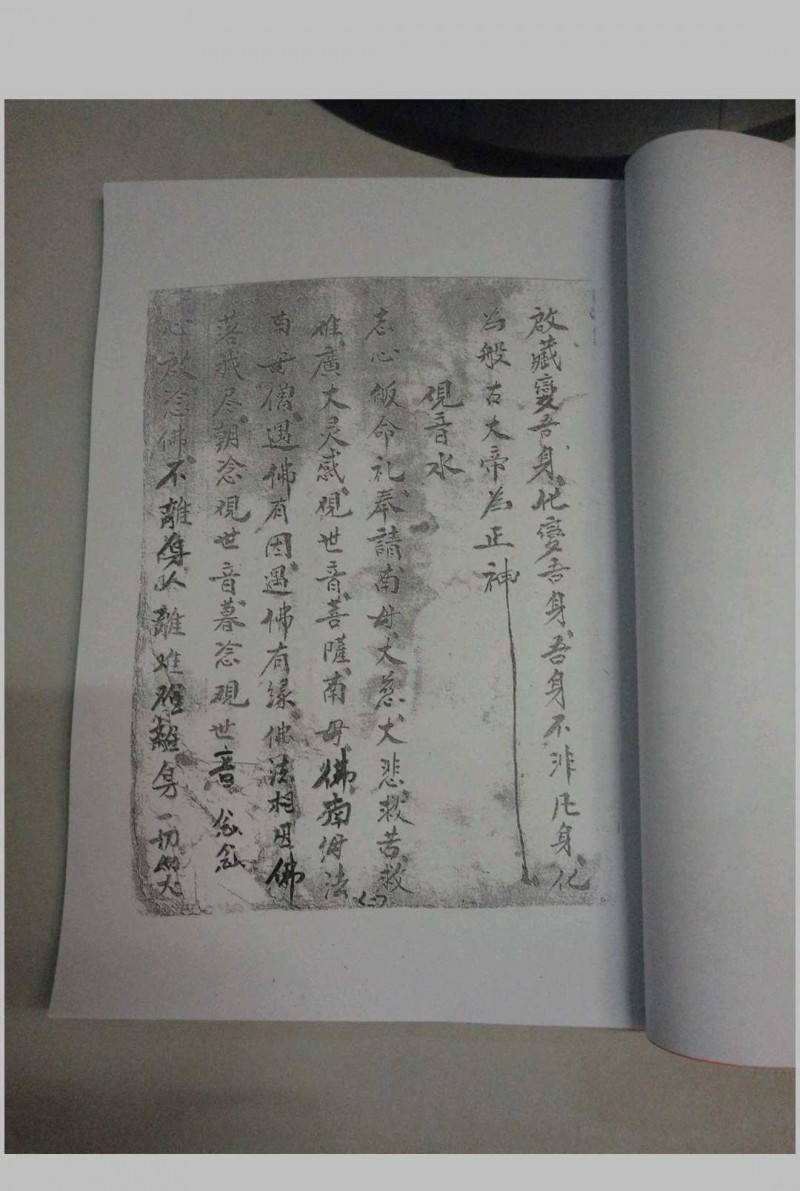 啟藏變吾身化變吾身吾身不非凡身化
為般古大帝為正神
覌音水
志心皈命礼奉請南毋大慈大悲救苦救
难廣大灵感覌世音菩薩南毋佛南毋法
南毋僧遇佛有因遇佛有緣佛法相因佛
菩我尽朝念覌世音暮念覌世音念念
心啟念佛不離身难離身一切災